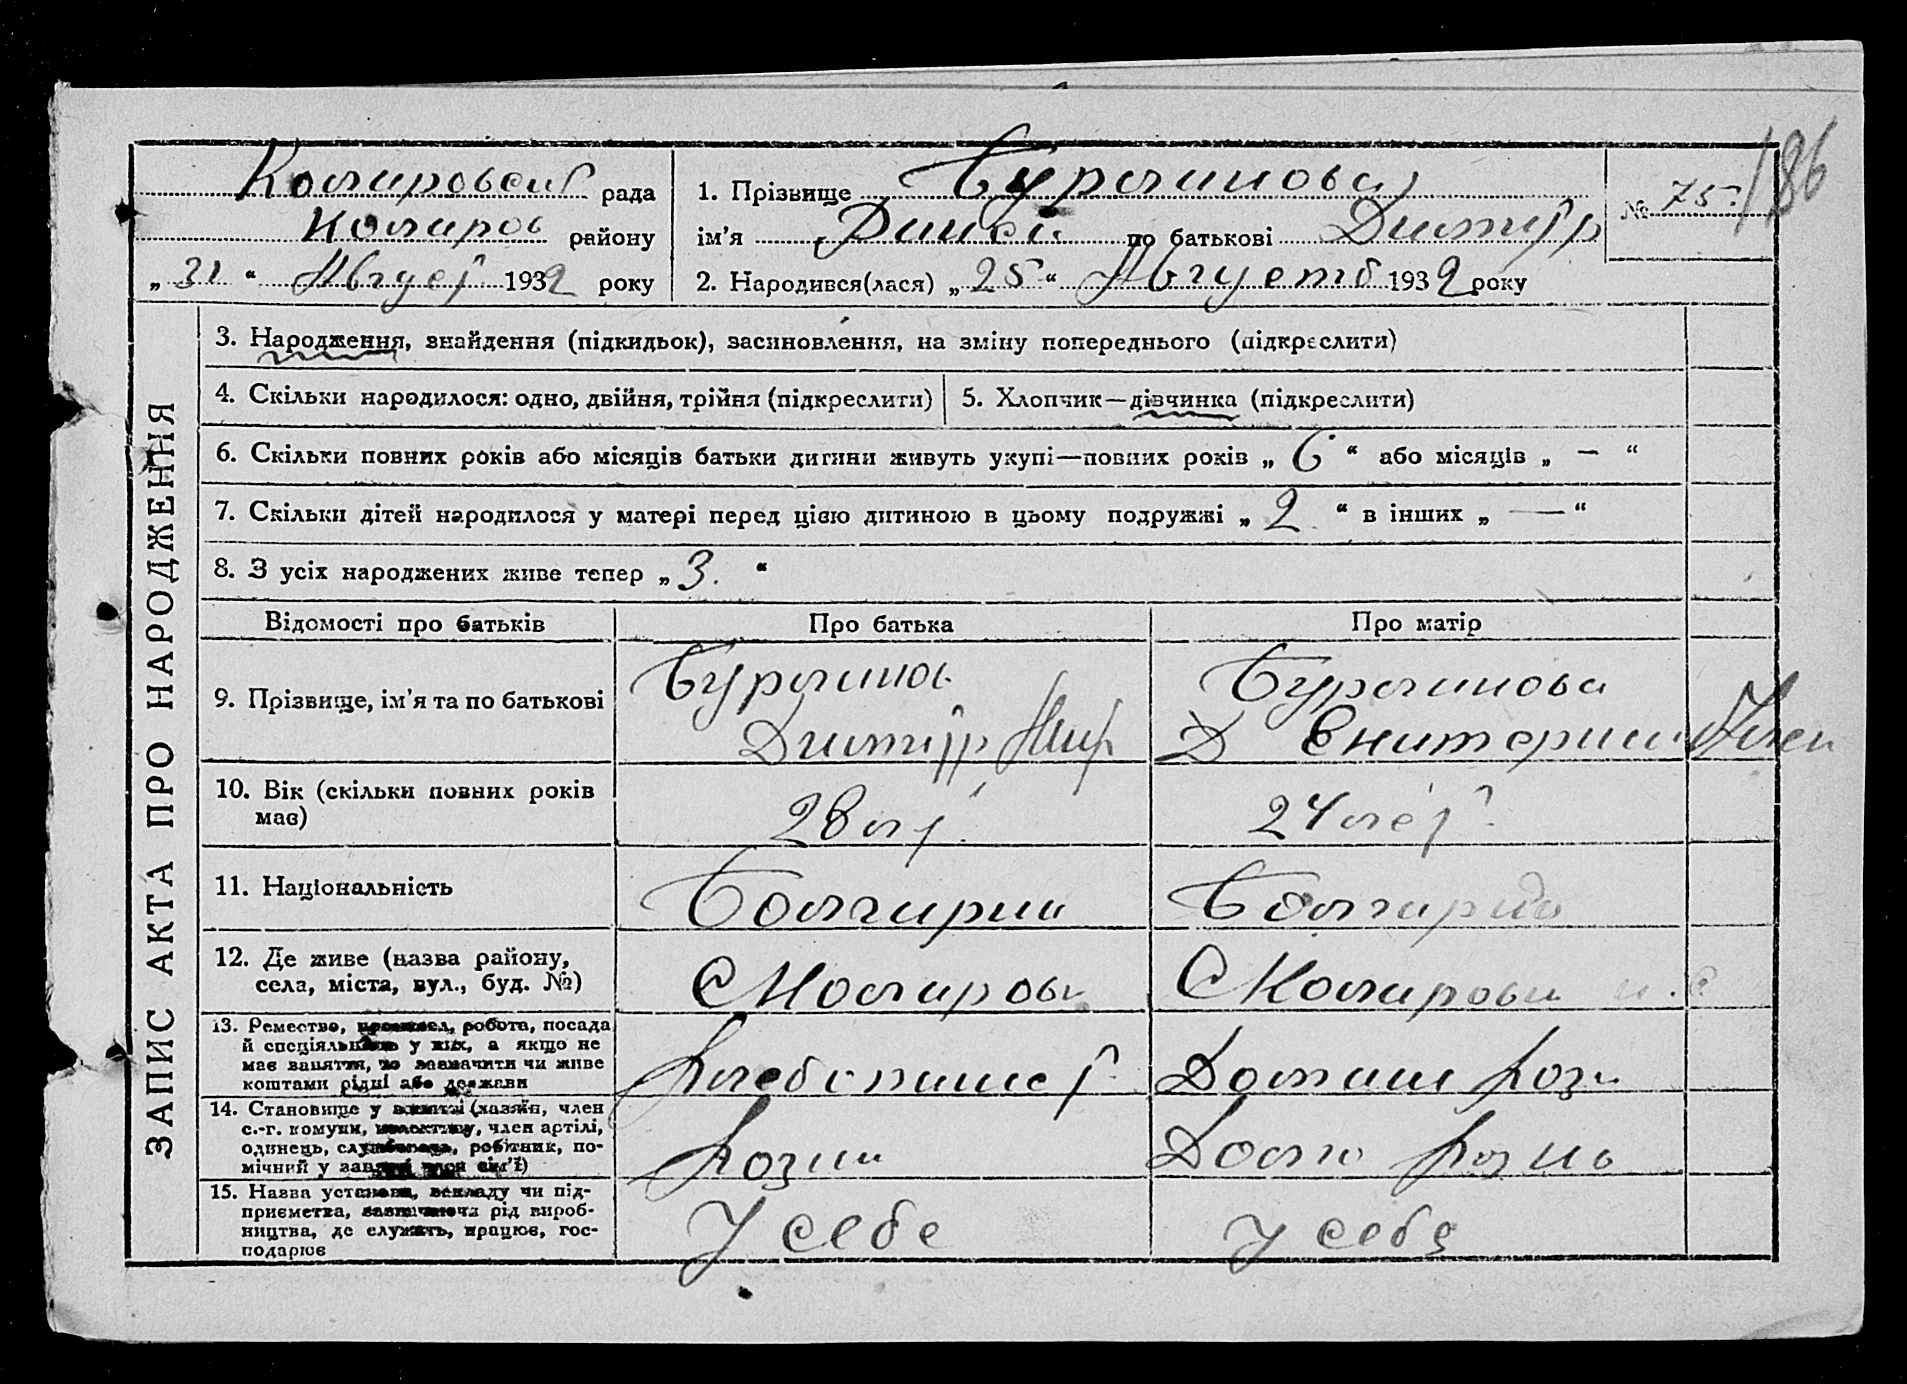 186
Коларовска рада
Коларов району
„ 31 “ Август 1932 року
1. Прізвище Бурлакова
ім’я по батькові Димитр
№ 75
2. Народився(лася) „ 25 “ Августа 1932 року
ЗАПИС АКТА ПРО НАРОДЖЕННЯ
3. Народження, знайдення (підкидьок), засиновлення, на зміну попереднього (підкреслити)
4. Скільки народилося: одно, двійня, трійня (підкреслити)
5. Хлопчик—дівчинка (підкреслити)
6. Скільки повних років або місяців батьки дитини живуть укупі—повних років „ 6 “ або місяців „ — “
7. Скільки дітей народилося у матері перед цією дитиною в цьому подружжі „ 2 “ в інших „ — “
8. З усіх народжених живе тепер „ 3. “
Відомості про батьків
Про батька
Про матір
9. Прізвище, ім’я та по батькові
Димитр
10. Вік (скільки повних років
має)
28 л
24 лет
11. Національність
Болгарин
Болгарка
12. Де живе (назва району,
села, міста, вул., буд. №)
С Коларовка
С Коларовка
13. Ремество, промисел, робота, посада
й спеціяльність у них, а якщо не
має заняття, то зазначити чи живе
коштами рідні або держави
Хлебопашест
Домаш хоз
14. Становище у занятті (хазяїн, член
с.-г. комуни, колективу, член артілі,
одинець, службовець, робітник, по-
мічний у занятті член сім’ї)
Хозяин
15. Назва установи, закладу чи під-
приємства, зазначаючи рід вироб-
ництва, де служить, працює, гос-
подарює
У себе
у себя